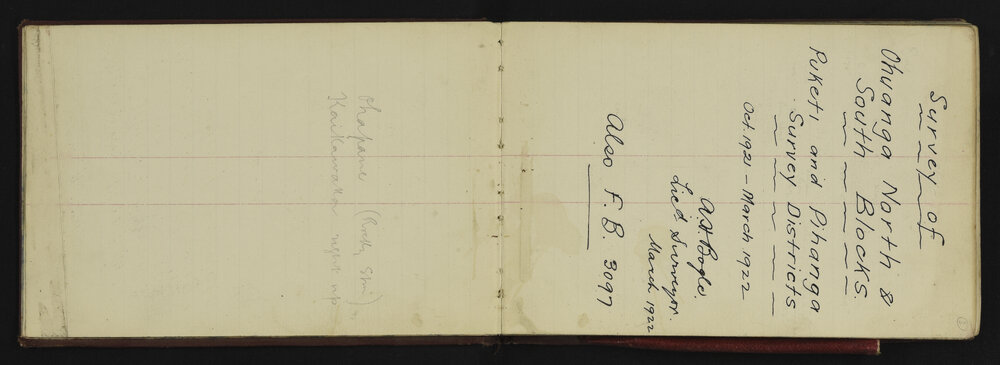 Survey of
Ohuanga North &
South Blocks.
Puketi and Pihanga
Survey Districts
Oct. 1921 - March 1922
A.H. Bogle.
Licd. Surveyor.
March 1922
Also F.B. 3097
Ohakune